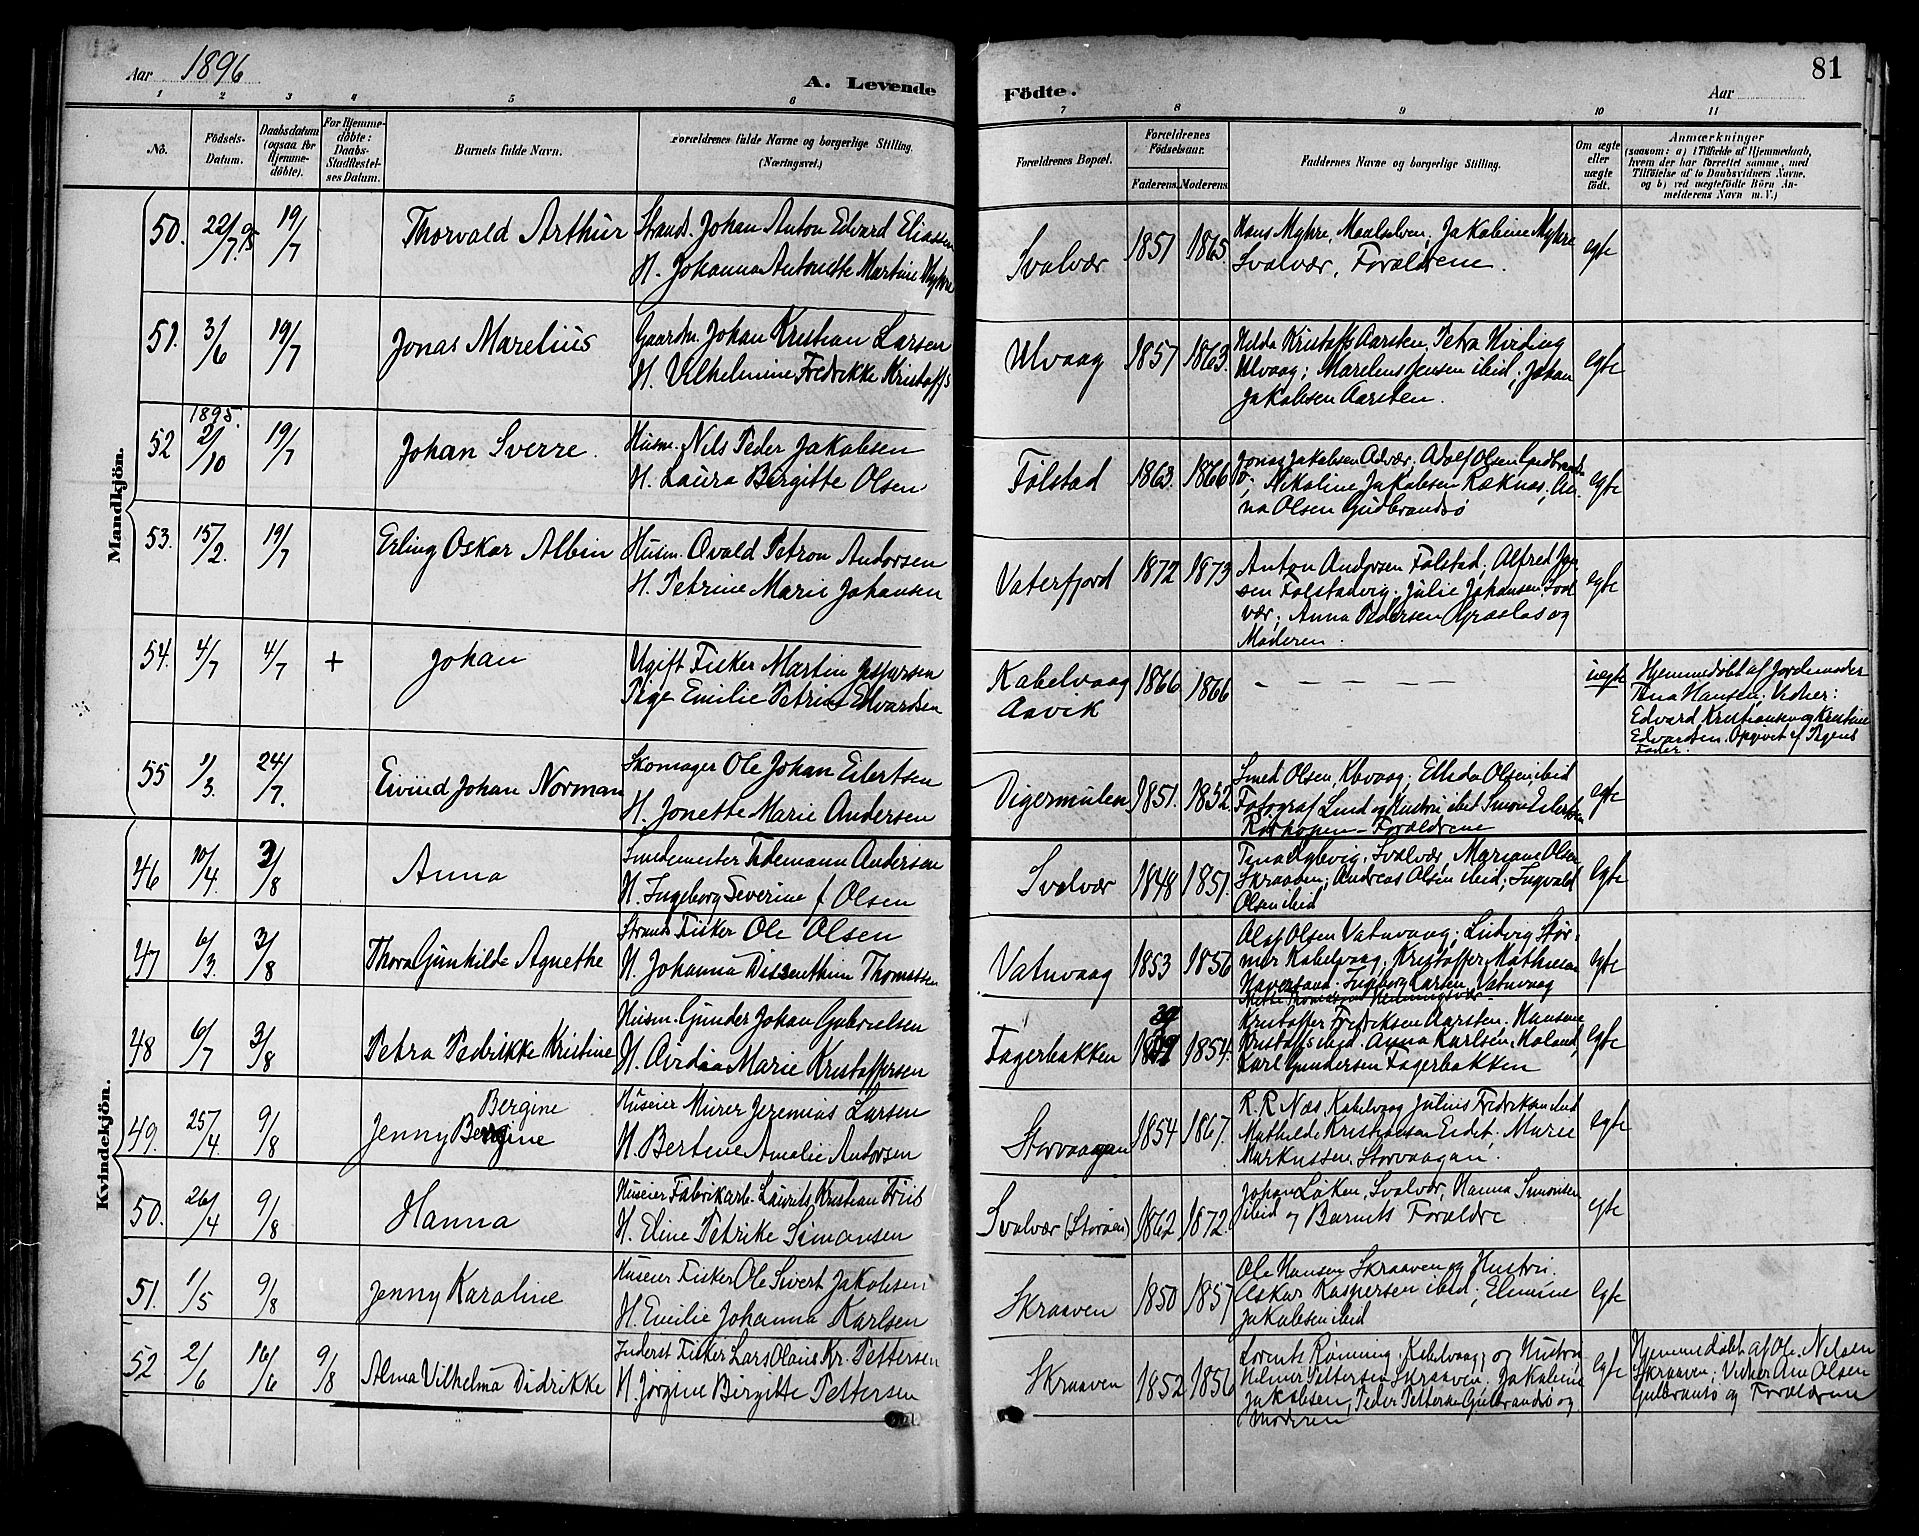 Aar 1896
A. Levende
Fødte.
Aar
81
1 2 3 4 5 6 7 8 9 10 11
No.
Födsels-
Datum.
Daabsdatum
(ogsaa for
Hjemme-
döbte).
For Hjemme-
döbte:
Daabs-
Stadfæstel-
ses Datum.
Barnets fulde Navn.
Forældrenes fulde Navne og borgerlige Stilling.
(Næringsvei.)
Forældrenes Bopæl.
Forældrenes
Födselsaar.
Faderens. Moderens.
Faddernes Navne og borgerlige Stilling.
Om ægte
eller
uægte
født.
Anmærkninger
(saasom: a) i Tilfælde af Hjemmedaab,
hvem der har forrettet samme, med
Tilföielse af to Daabsvidners Navne,
og b) ved uægtefödte Börn An-
melderens Navn m. V.)
Mandkjön.
50. 22/7 95 19/7 Thorvald Arthur
Strands. Johan Anton Edvard Eliassen
H. Johanna Antonette Martine Myhre
Svolvær 1851 1865.
Hans Myhre, Maalselven, Jakobine Myhre
Svolvær, Forældrene.
egte
51. 3/6 19/7 Jonas Marelius
Gaardm. Johan Kristian Larsen
H. Vilhelmine Fredrikke Kristoffs
Ulvaag 1857 1863.
Hilda Kristoffs Aarsten, Petra Hviding
Ulvaag; Marelius Jensen ibid; Johan
Jakobsen Aarsten.
egte
52 1895. 2/10 19/7 Johan Sverre.
Husm. Nils Peder Jakobsen
H. Laura Birgitte Olsen
Følstad 1863. 1866
Jonas Jakobsen Advær, Adolf Olsen Gudbrands-
ø; Nikoline Jakobsen Ræknæs, An-
na Olsen Gudbrandsø
egte
53. 15/2. 19/7 Erling Oskar Albin
Husm. Ovald Petron Andorsen
H. Petrine Marie Johansen
Vaterfjord 1872 1873
Anton Andorsen Følstad, Alfred Jen-
sen Følstadvig. Julie Johansen
vær; Anna Pedersen og
Moderen.
egte
54. 4/7 4/7 + Johan
Ugift Fisker Martin Jespersen
Pige Emilie Petrine Edvardsen
Kabelvaag
Aavik
1866 1866
— — — — —
uegte
Hjemmedøbt af Jordemoder
Tina Hansen, Vidner:
Edvard Kristiansen og Kristine
Edvardsen. Opgivet af Pigens
Fader.
55 1/3. 24/7. Eivind Johan Norman
Skomager Ole Johan Eilertsen
H. Jonette Marie Andersen
Digermulen 1851. 1852.
Smed Olsen, Kbvaag; Ellida Olsen ibid
Fotograf Lind og Hustru ibid. Simon Eilertsen
Rørhopen – Forældrene
egte
Kvindekjön.
46 10/4. 2/8 Anna
Smedemester Tidemann Andersen
H. Ingeborg Severine f. Olsen
Svolvær 1848 1851.
Tina, Svolvær, Mariane Olsen
Skraaven; Andreas Olsen ibid; Ingvald
Olsen ibid
egte
47 6/3. 2/8 Thora Gunhilde Agnethe
Strands. Fisker Ole Olsen
H. Johanna Dissenthine Thomassen
Vatnvaag 1853 1856
Olaf Olsen Vatnvaag; Ludvig Stør-
mer Kabelvaag; Kristoffer Mathisen
Haversand. Ingeborg Larsen, Vatnvaag
Mette Thomassen Henningsvær.
egte
48 6/7 2/8 Petra Pedrikke Kristine
Husm. Gunder Johan Gabrielsen
H. Ovidia Marie Kristoffersen
Fagerbakken 39 1854.
Kristoffer Fredriksen Aarsten. Hansine
Kristoffs ibid. Anna Karlsen, Holand,
Karl Gundersen Fagerbakken
egte
49. 25/4. 9/8 Bergine
Jenny Bergine
Huseier Murer Jeremias Larsen
H. Bertine Amalie Andorsen
Storvaagan 1854 1867.
R. R. Næs, Kabelvaag Julius Fredriksen ibid
Mathilde Kristiansen Eidet, Marie
Markussen, Storvaagan.
egte
50. 26/4 9/8 Hanna
Huseier Fabrikarb. Laurits Kristian Friis
H. Eline Petrike Simonsen
Svolvær (Storøen) 1862 1872.
Johan Løken, Svolvær, Hanna Simonsen
ibid og Barnets Forældre.
egte
51. 1/5 9/8 Jenny Karoline
Huseier Fisker Ole Sivert Jakobsen
H. Emilie Johanna Karlsen
Skraaven 1850 1857
Ole Hansen Skraaven og Hustru.
Oskar Kaspersen ibid; Elmine
Jakobsen ibid
egte
52 2/6 16/6 9/8 Alma Vilhelma Didrikke
Inderst Fisker Lars Olaus Kr. Pettersen
H. Jørgine Birgitte Pettersen
Skraaven 1852 1856
Lorents Rønning, Kabelvaag; og Hustru
Hilmer Pettersen Skraaven. Jakobine
Jakobsen, Peder Pettersen Gulbrandsø og
Moderen
egte
Hjemmedøbt af Ole Nilsen
Skraaven; Vidner Ane Olsen
Gulbrandsø og Forældrene